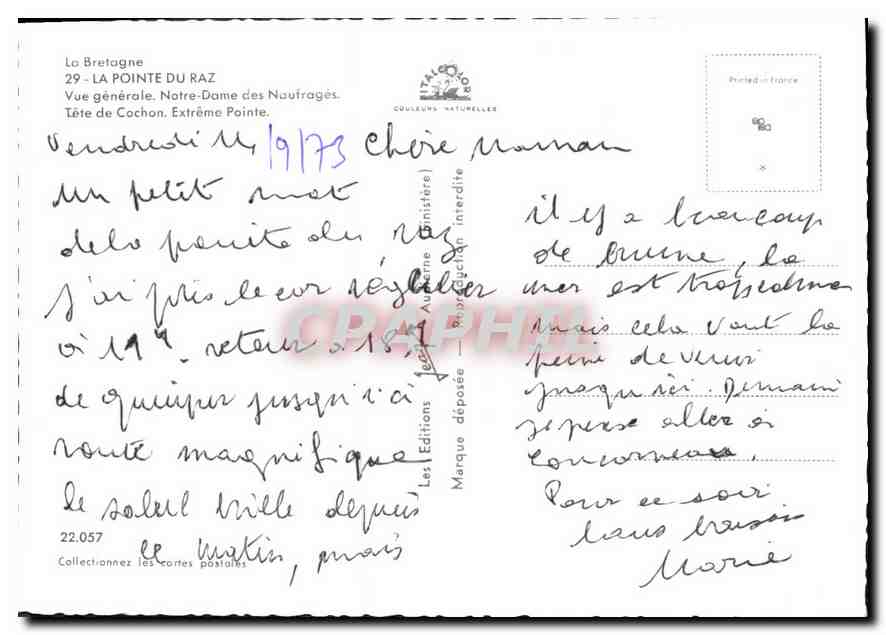 La Bretagne
29 - LA POINTE DU RAZ
Vue générale. Notre-Dame des Naufragés.
Tête de Cochon. Extrême Pointe.
VITALCOLOR
COULEURS NATURELLES
Printed in France
Vendredi 14/9/73 Chère Maman
un petit mot
de la pointe du raz
j'ai pris le car régulier
à 11h. retour à 18h
de Quimper jusqu'ici
route magnifique
le soleil brille depuis
ce matin, mais
22.057
Collectionnez les cartes postales
Les Editions Jean Audierne (Finistère)
Marque déposée — Reproduction interdite
il y a beaucoup
de brume, la
mer est trop calme
mais cela vaut la
peine de venir
jusqu'ici. Demain
je pense aller à
Concarneau.
Pour ce soir
bons baisers
Marie
CPAPHIL